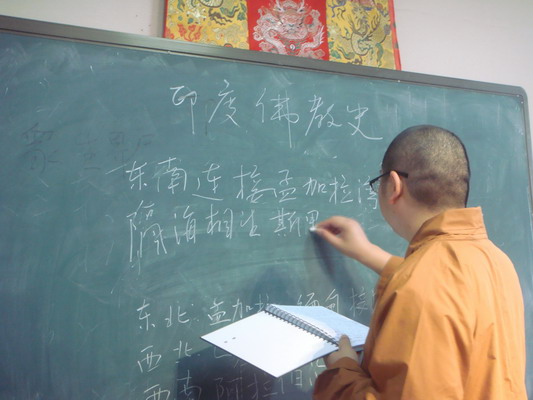 印度佛教史
东南连接孟加拉湾
隔海相望斯里
东北:孟加拉 缅甸
西北
西南 阿拉伯